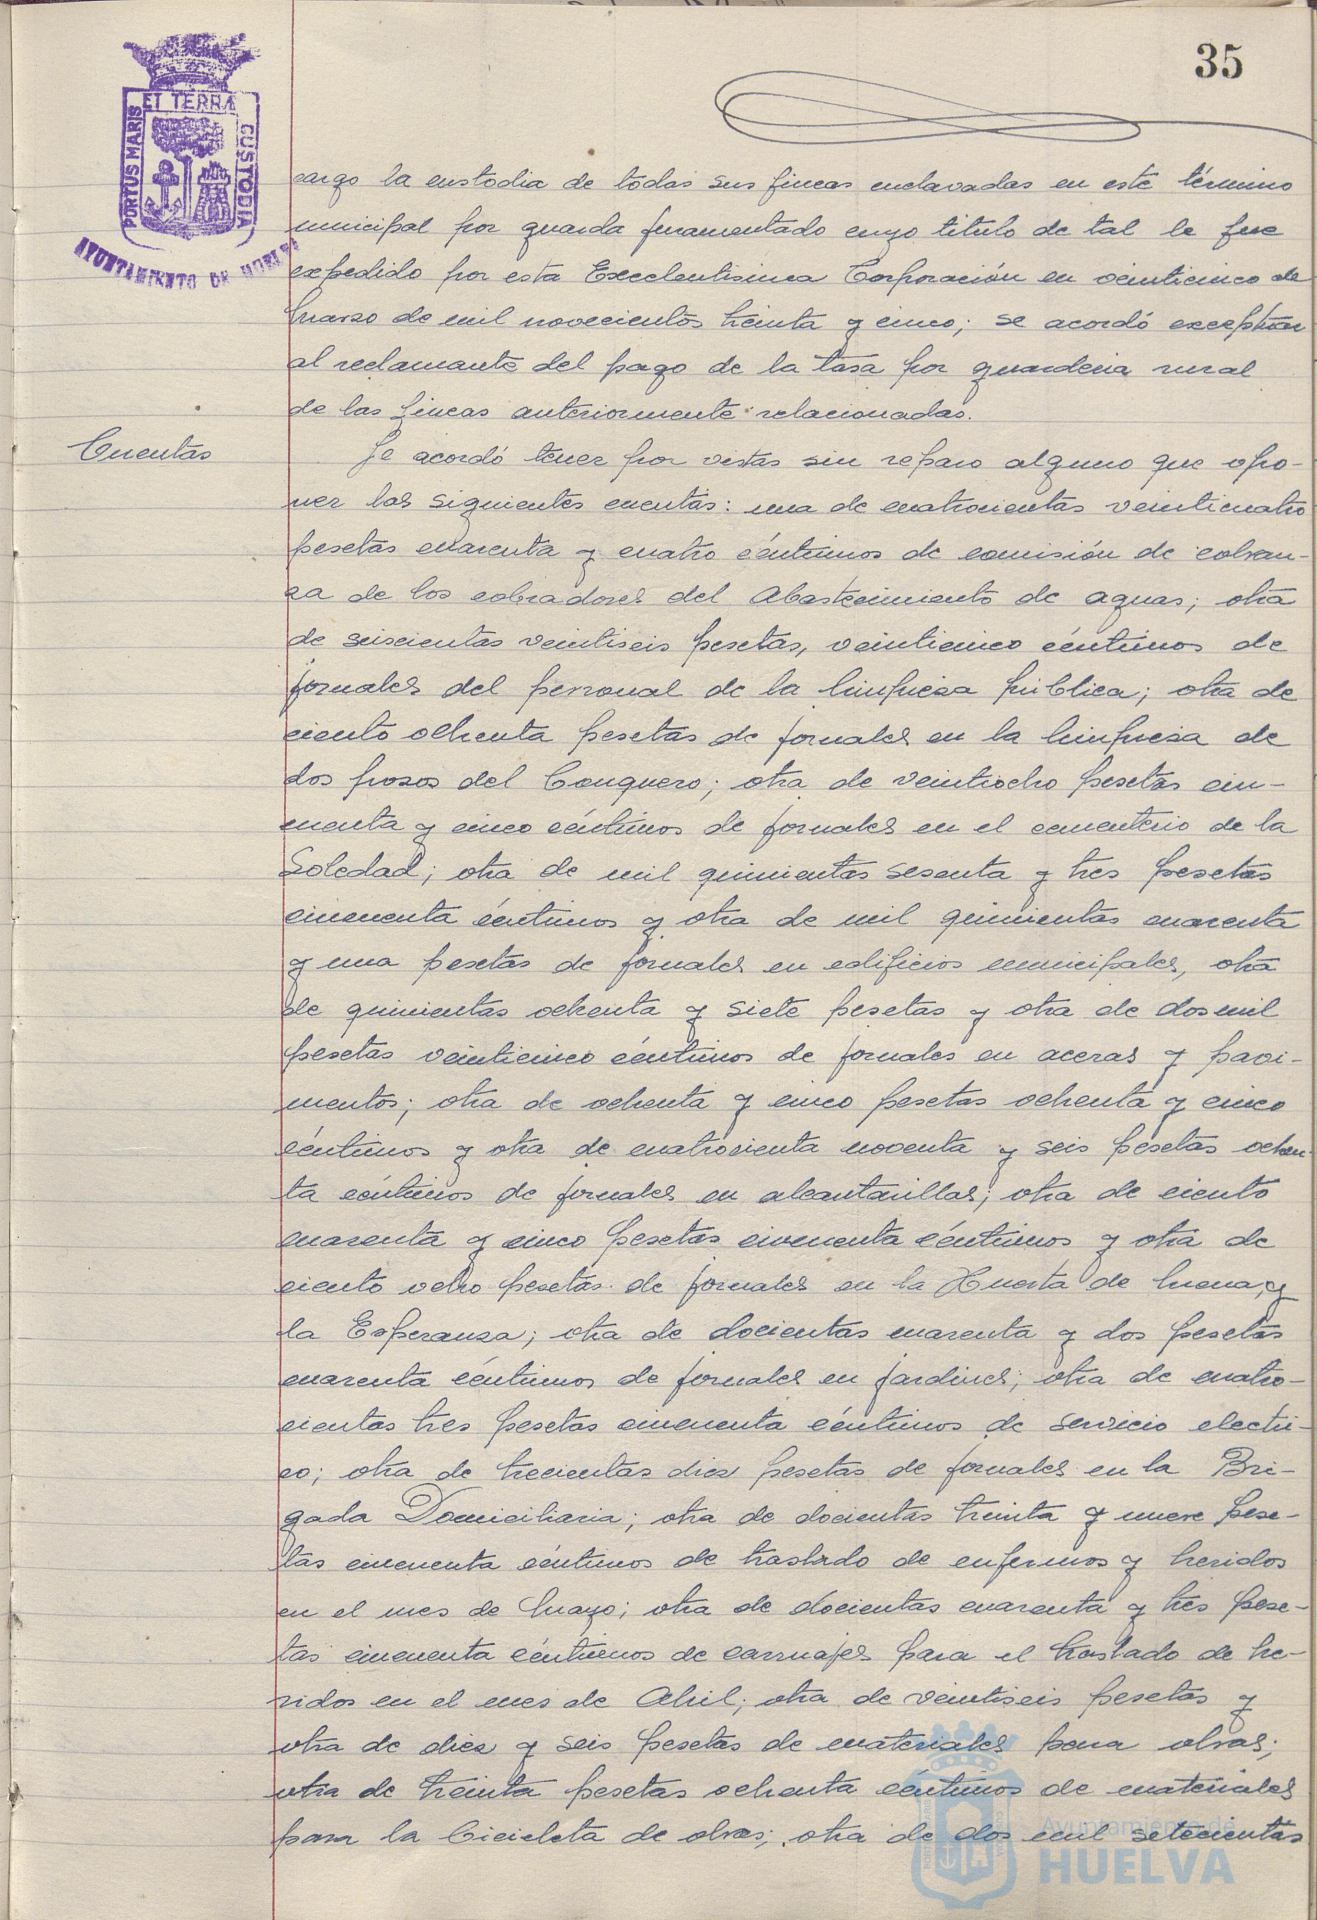 35
ET TERRÆ
PORTUS MARIS
CUSTODIA
AYUNTAMIENTO DE HUELVA
cargo la custodia de todas sus fincas enclavadas en este término
municipal por guarda juramentado cuyo titulo de tal le fue
expedido por esta Excelentisima Corporación en veinticinco de
Marzo de mil novecientos treinta y cinco; se acordó exceptuar
al reclamante del pago de la tasa por guarderia rural
de las fincas anteriormente relacionadas.
Cuentas
Se acordó tener por vistas sin reparo alguno que opo-
ner las siguientes cuentas: una de cuatrocientas veinticuatro
pesetas cuarenta y cuatro céntimos de comisión de cobran-
za de los cobradores del Abastecimiento de aguas; otra
de seiscientas veintiseis pesetas, veinticinco céntimos de
jornales del personal de la limpieza pública; otra de
ciento ochenta pesetas de jornales en la limpieza de
dos pozos del Conquero; otra de veintiocho pesetas cin-
cuenta y cinco céntimos de jornales en el cementerio de la
Soledad; otra de mil quinientas sesenta y tres pesetas
cincuenta céntimos y otra de mil quinientas cuarenta
y una pesetas de jornales en edificios municipales, otra
de quinientas ochenta y siete pesetas y otra de dos mil
pesetas veinticinco céntimos de jornales en aceras y pavi-
mentos; otra de ochenta y cinco pesetas ochenta y cinco
céntimos y otra de cuatrocienta noventa y seis pesetas ochen-
ta céntimos de jornales en alcantarillas; otra de ciento
cuarenta y cinco pesetas cincuenta céntimos y otra de
ciento ocho pesetas de jornales en la Huerta de Mena, y
la Esperanza; otra de docientas cuarenta y dos pesetas
cuarenta céntimos de jornales en jardines; otra de cuatro-
cientas tres pesetas cincuenta céntimos de servicio electri-
co; otra de trecientas diez pesetas de jornales en la Bri-
gada Domiciliaria; otra de docientas treinta y nueve pese-
tas cincuenta céntimos de traslado de enfermos y heridos
en el mes de Mayo; otra de docientas cuarenta y tres pese-
tas cincuenta céntimos de carruajes para el traslado de he-
ridos en el mes de Abril; otra de veintiseis pesetas y
otra de diez y seis pesetas de materiales para obras;
otra de treinta pesetas ochenta centimos de materiales
para la bicicleta de obras; otra de dos mil setecientas
Ayuntamiento de
HUELVA